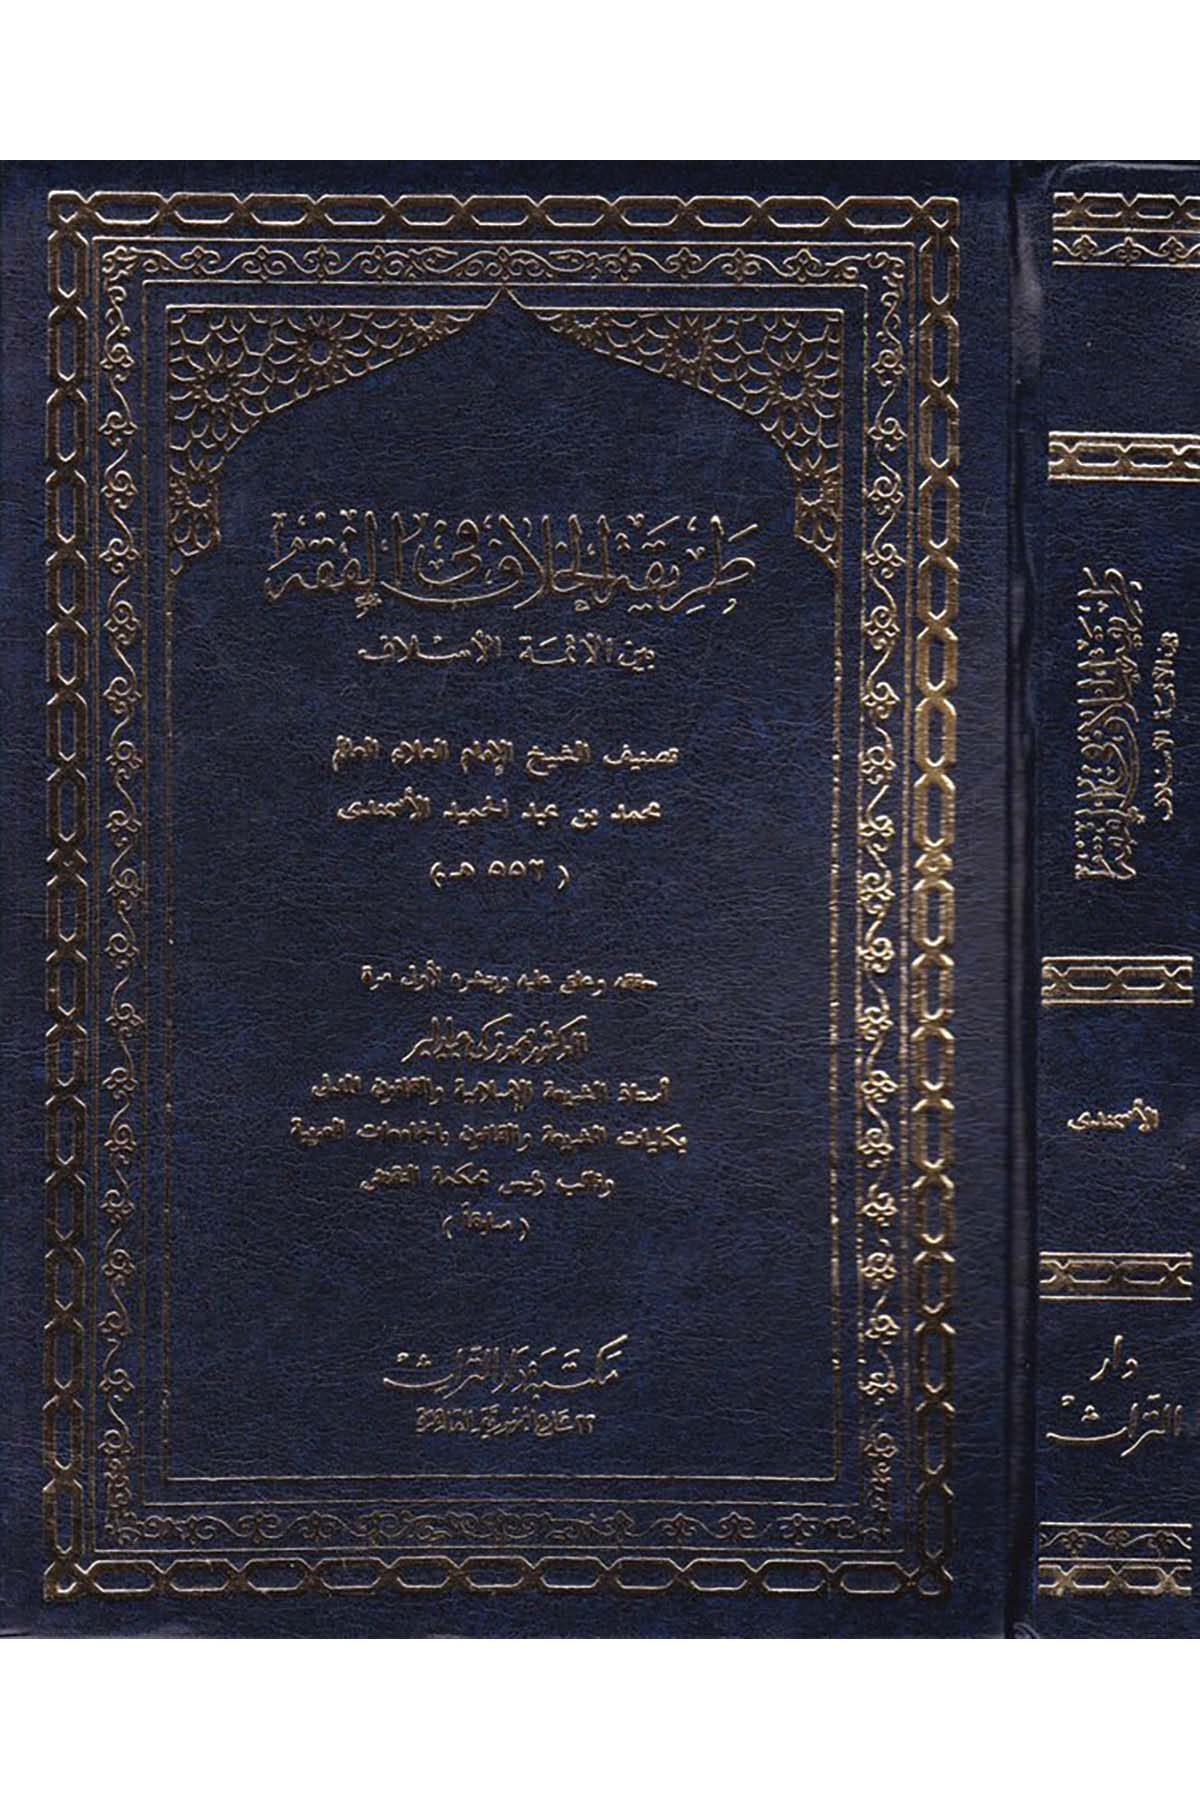 طريقة الخلاف في الفقه
بين الأئمة الأسلاف
تصنيف الشيخ الإمام العلاء العالم
محمد بن عبد الحميد الأسمندى
( ٥٥٢ هـ )
حققه وعلق عليه وينشره لأول مرة
الدكتور محمد زكي عبد البر
أستاذ الشريعة الإسلامية والقانون المدنى
بكليات الشريعة والقانون بالجامعات العربية
ونائب رئيس محكمة النقض
( سابقاً )
مكتبة دار التراث
٢٢ شارع الجمهورية القاهرة
طريقة الخلاف في الفقه
بين الأئمة الأسلاف
الأسمندى
دار
التراث